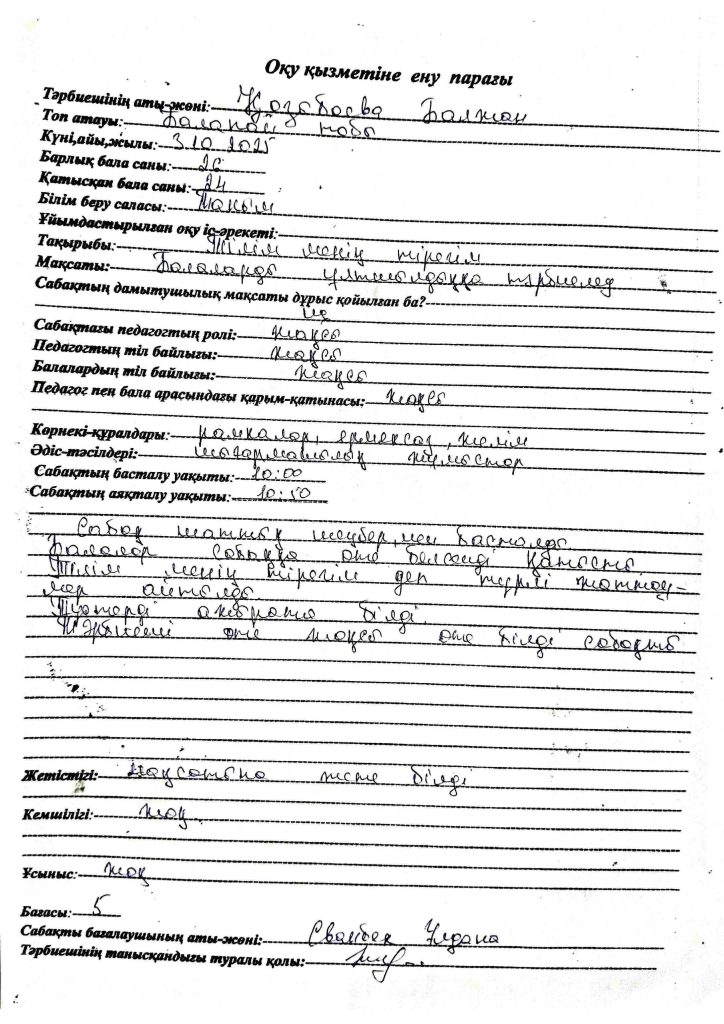 Оқу қызметіне ену парағы
Тәрбиешінің аты-жөні: Қозыбаева Балжан
Топ атауы: Балапан тобы
Күні,айы,жылы: 3.10.2025
Барлық бала саны: 26
Қатысқан бала саны: 24
Білім беру саласы: Таным
Ұйымдастырылған оқу іс-әрекеті:
Тақырыбы: Тілім менің тірегім
Мақсаты: Балаларды ұлтшылдыққа тәрбиелед
Сабақтың дамытушылық мақсаты дұрыс қойылған ба?
Иә
Сабақтағы педагогтың ролі: жақсы
Педагогтың тіл байлығы: жақсы
Балалардың тіл байлығы: жақсы
Педагог пен бала арасындағы қарым-қатынасы: жақсы
Көрнекі-құралдары: рамкалар, ермексаз, желім
Әдіс-тәсілдері: шығармашылық жұмыстар
Сабақтың басталу уақыты: 10:00
Сабақтың аяқталу уақыты: 10:50
Сабақ шаттық шеңбермен басталды
Балалар сабаққа өте белсенді қатысты
Тілім менің тірегім деп түрлі жаттау-
лар айтылды
ажырата білді.
Тәрбиеші өте жақсы өте білді сабақты
Жетістігі: Мақсатына жете білді
Кемшілігі: жоқ
Ұсыныс: жоқ
Бағасы: 5
Сабақты бағалаушының аты-жөні: Улдана
Тәрбиешінің танысқандығы туралы қолы: